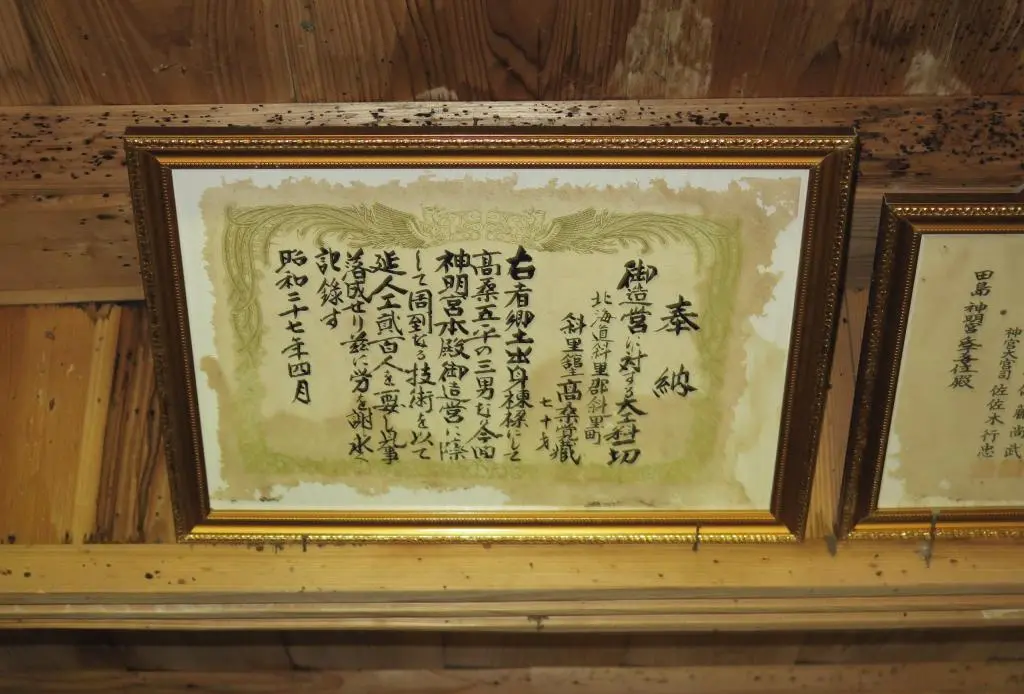 奉納
御造営に対する
北海道斜里郡斜里町
斜里 高桑 蔵
七十才
右者郷土出身棟梁にして
高桑五平の三男なり今回
神明宮本殿御造営に際
して周到なる技術を以て
延人工貳百人を要し見事
落成せり茲に労を謝永く
記録す
昭和二十七年四月
尚武
神宮大宮司 佐佐木行忠
田島 神明宮 殿